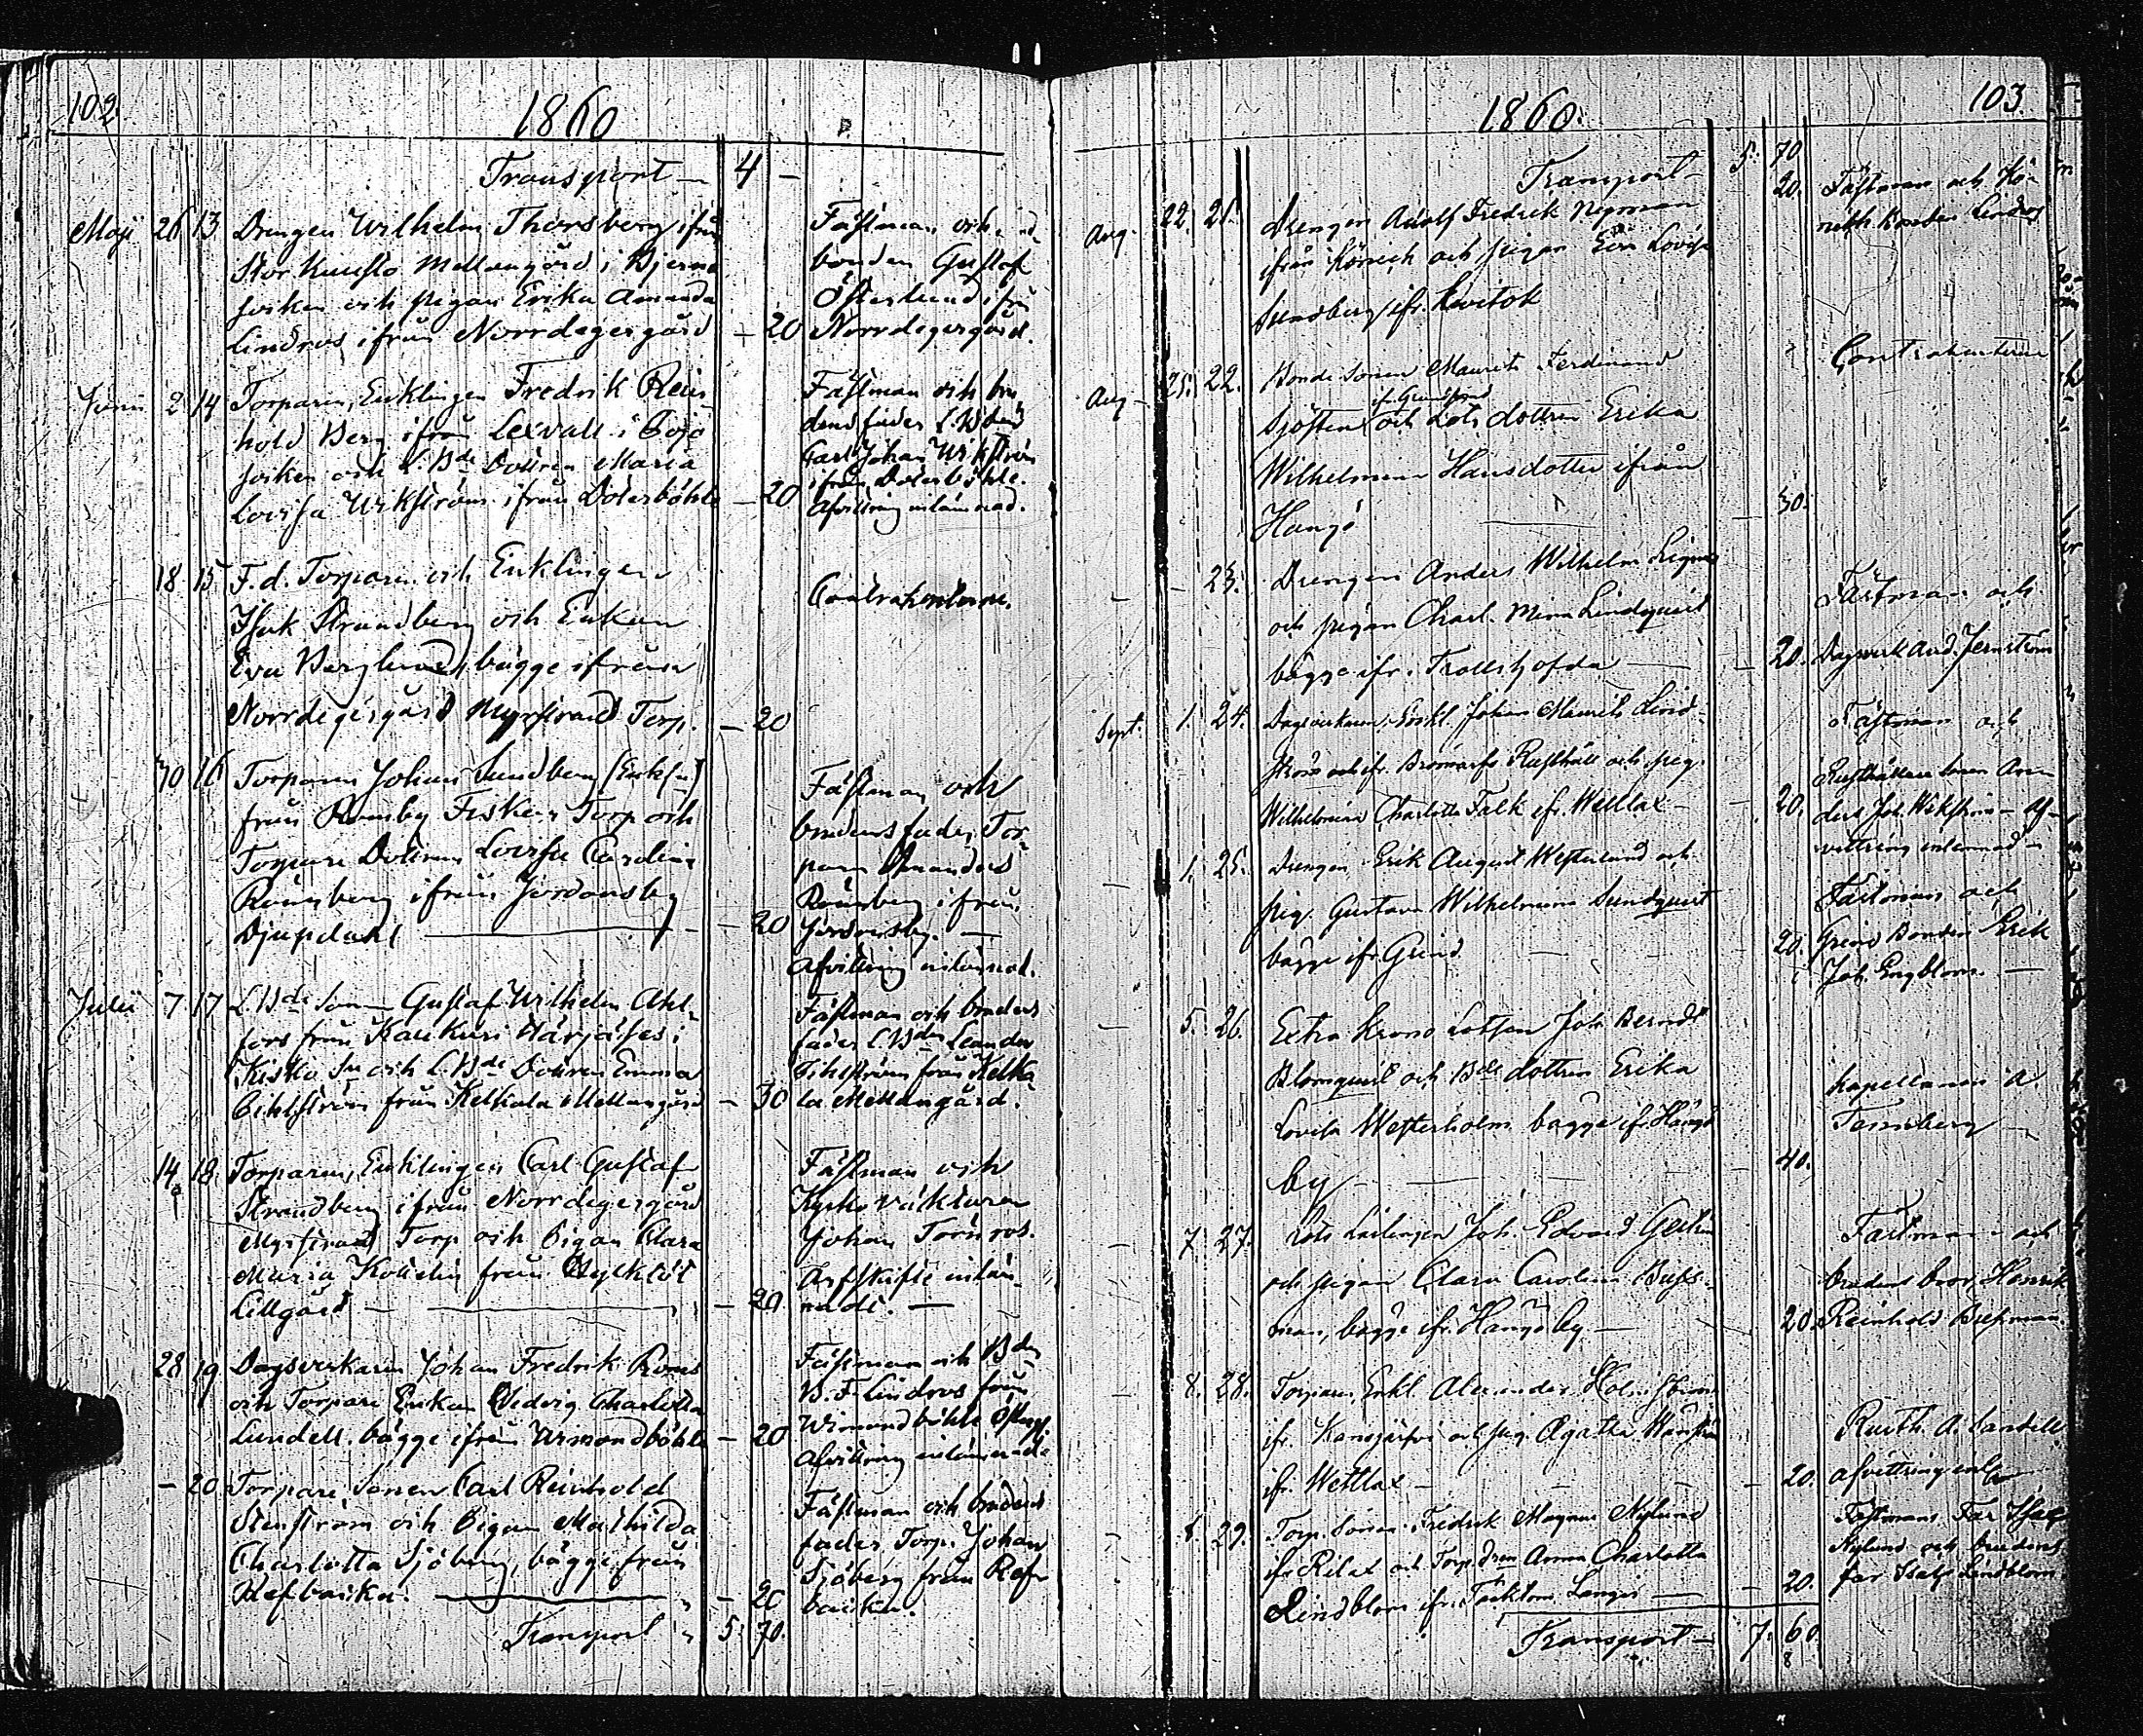 102
1860
Transport — 4 —
Maji 26 13 Drengen Wilhelm Thorsberg ifrån
Stor Mellangård i Bjerno
socken och pigan Erika Amanda
Lindros ifrån Norrdegergård — 20
Fästman och
bonden Gustaf
Österlund ifrån
Norrdegergård.
Junii 2 14 Torparen, Enklingen Fredrik Rein-
hold Berg ifrån Lexvall i Pojo
socken och L. Bde Dottren Maria
Lovisa Wikström ifrån Dölesböhle — 20
Fästman och bru
dens fader L. Bonden
Carl Johan Wikström
ifrån Dölesböhle.
Afvittring inlämnad.
18 15 F.d. Torparen och Enklingen
Isak Strandberg och Enkan
Eva Berglund, bägge ifrån
Norrdegergård Myrstrand Torp. — 20
Contrahenterne.
30 16 Torparen Johan Sundberg
från Romby Fiskars Torp och
Torpare Dottren Lovisa Carolina
Rönnberg ifrån Jordansby
Djupdahl — 20
Fästman och
brudens fader Tor-
paren
Rönnberg ifrån
Jordansby. —
Afvittring inlämnad.
Julii 7 17 L. Bde Sonen Gustaf Wilhelm Ahl-
fors från Kaukuri Härjäses i
Kisko Sn och L. Bde Dottren Emma
Öihlström från Kelkiala Mellangård — 30
Fästman och brudens
fader L. Bden Leander
från Kelkia
la Mellangård.
14 18 Torparen, Enklingen Carl Gustaf
Strandberg ifrån Norrdegergård
Myrstrand Torp och Pigan Clara
Maria från
Lillgård — 20
Fästman och
Kyrko väktaren
Johan Törnros.
Arfskifte inläm-
nade. —
28 19 Dagsverkaren Johan Fredrik Roos
och Torpare Enkan Hedvig Charlotta
Lundell. bägge ifrån Wimondböhle — 20
Fästman och Bden
B. F. Lindros från
Wimondböhle
Afvittring inlämnad.
— 20 Torpare Sonen Carl Reinhold
Stenström och Pigan Mathilda
Charlotta Sjöberg, bägge från
Refbacka. — 20
Fästman och brudens
fader Torp. Johan
Sjöberg från Ref-
backa.
Transport 5: 70.
1860.
103
Transport 5: 70
Aug. 22. 21. Drengen Adolf Fredrik Nyman
ifrån och pigan Eva Lovisa
Sundberg ifr. 20.
Fästman och
Lindros
Aug — 25. 22. Bonde Sonen Maurits Ferdinand
Sjösten och Lots dottren Erika
Wilhelmina Hansdotter ifrån
Hangö — 30.
Contrahenterne
— — 23. Drengen Anders Wilhelm
och pigan Charl. Mina Lindquist
bägge ifr. Trollshofda — 20.
Fästman och
Dagsverk. And. Jernström
Sept. 1. 24. Dagsverkaren, Enkl. Johan Maurits Lind-
ifr. Bromarfs Rusthåll och pig.
Wilhelmina Charlotta Falk ifr. Wättlax — 20.
Fästman och
Rusthållare Sonen An-
ders Joh. Wikström — af-
vittring inlämnad —
— 1. 25. Drengen Erik August Westerlund och
pig. Gustava Wilhelmina Sundquist
bägge ifr. Grind — 20.
Fästman och
Grind Bonden Erik
Joh. Engblom. —
— 5. 26. Extra Krono Lotsen Joh. Berndt
Blomquist och Bde dottren Erika
Lovisa Westerholm bägge ifr. Hangö
by — 40.
Kapellanen A.
— 7. 27. Lots Joh. Edvard
och pigan Clara Carolina Buss-
man, bägge ifr. Hangö by — 20.
Fästman och
brudens bror Henrik
Reinhold Bussman
— 8. 28. Torparen, Enkl. Alexander Holmström
ifr. Kansjärfvi och pig. Agatha
ifr. Wettlax — 20.
A. Sandell
afvittring
— 8. 29. Torp. Sonen Fredrik Magnus Nylund
ifr. Rilax och Torp. dren Anna Charlotta
Lindblom ifr. Täcktom — 20.
Fästmans Far Isac
Nylund och brudens
far Lindblom
Transport — 7. 60.